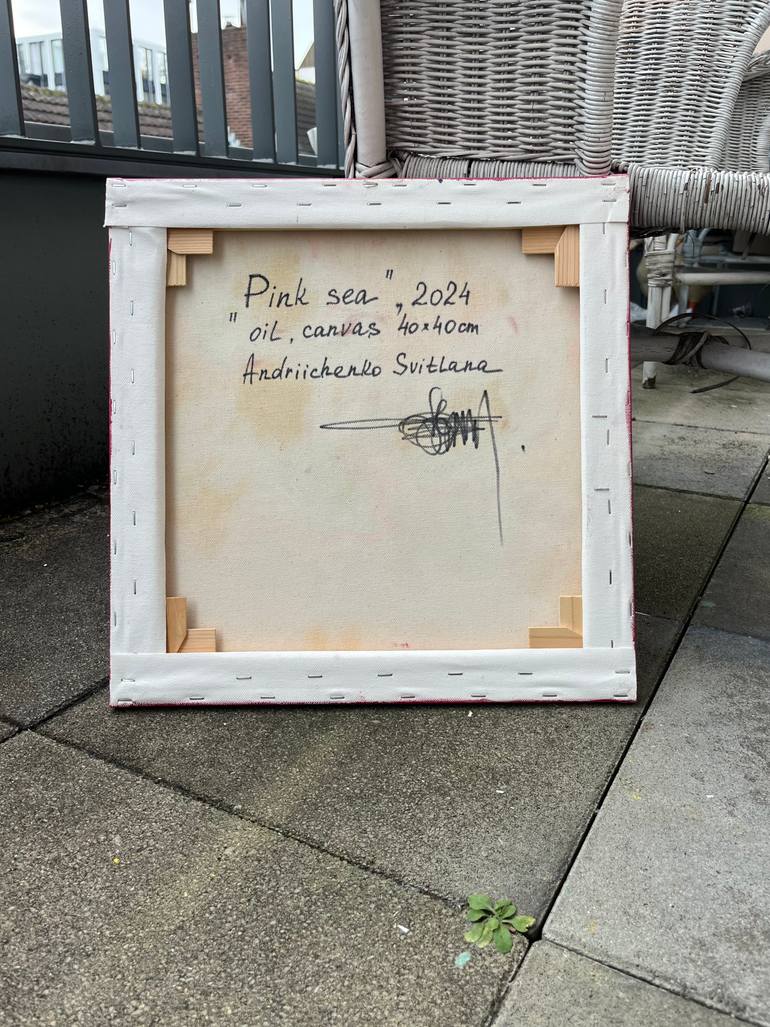 "Pink sea", 2024
oil, canvas 40×40cm
Andriichenko Svitlana